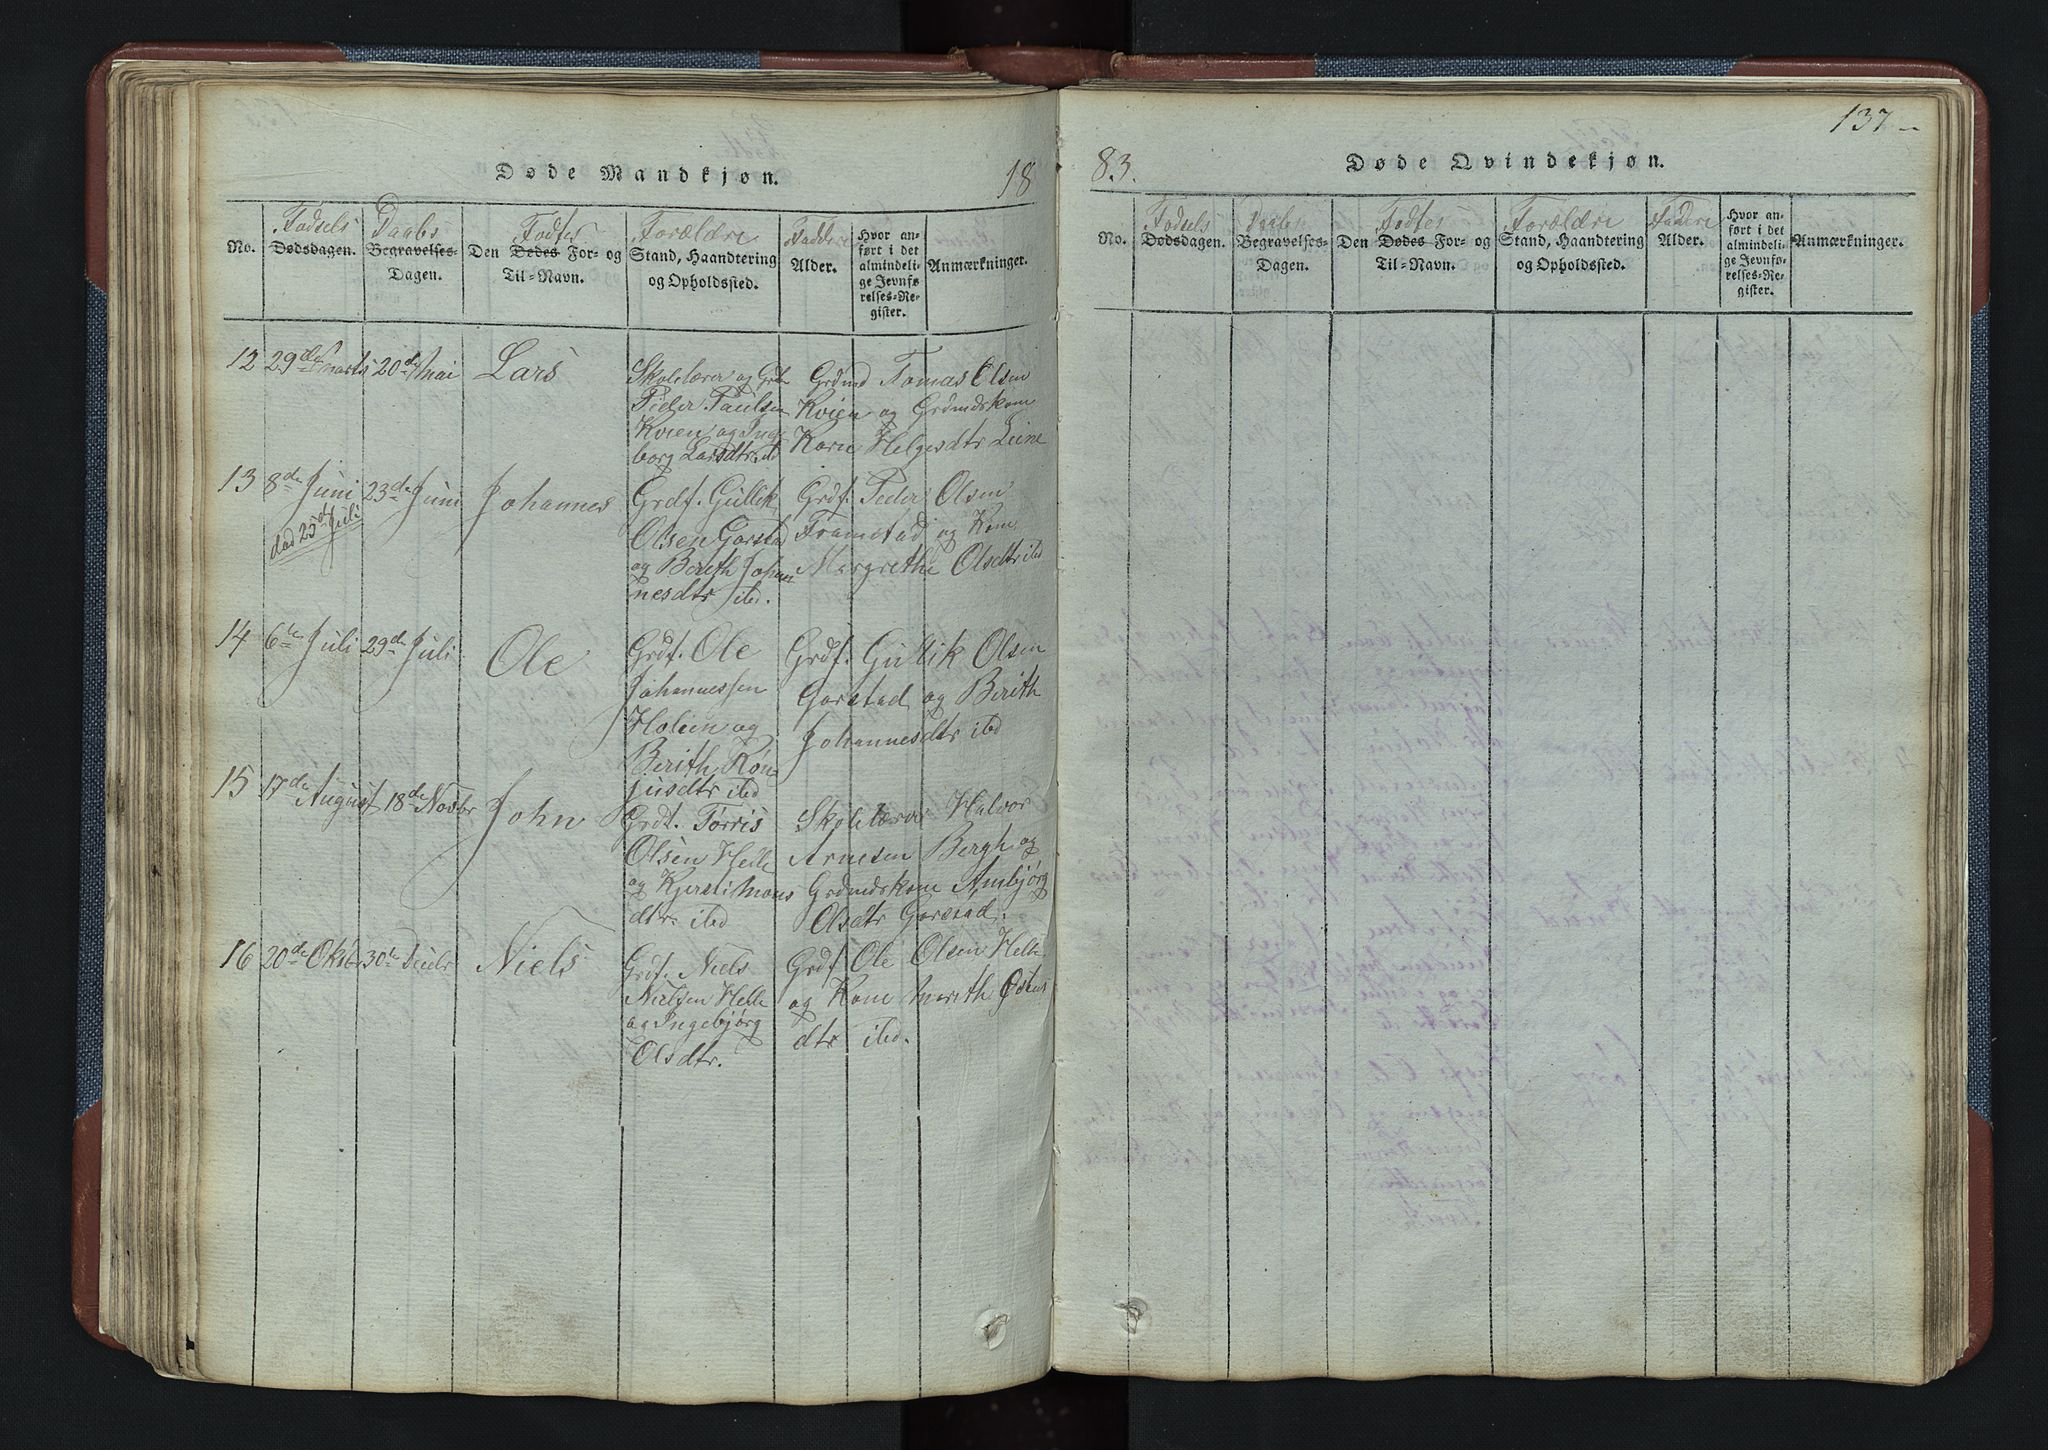 137
Døde Mandkjøn.
18
No.
Fødsels
Dødsdagen.
Daabs
Begravelses-
Dagen.
Fødtes
Den Dødes For- og
Til-Navn.
Forældre
Stand, Haandtering
og Opholdssted.
Faddere
Alder.
Hvor an-
ført i det
almindeli-
ge Jevnfø-
relses-Re-
gister.
Anmærkninger.
12 29de Marts 20de Mai Lars
Skolelærer og
Peder Paulsen
Kvien og Inge-
borg Larsdtr ibd
Grdmd Tomas Olsen
Kvien og Grdmdskone
Kari Helgesdtr Leine
13 8de Juni 23de Juni Johannes
død 25de Juli
Grdf. Gullik
Olsen Garstad
og Berith Johan-
nesdtr ibd.
Grdf. Peder Olsen
Framstad og Kone
Margrethe Olsdtr ibd
14 6te Juli 29de Juli Ole
Grdf. Ole
Johannessen
Holien og
Berith
ibd
Grdf. Gullik Olsen
Garstad og Berith
Johannesdtr ibd
15 17de August 18de Novbr John
Grdf. Torris
Olsen Helle
og Kjersti Mons-
dtr. ibd
Skolelærer Halvor
Arnesen Bergh og
Grdmdskone Ambjørg
Olsdtr Garstad.
16 20de Oktbr 30te Decbr Niels
Grdf. Niels
Nielsen Helle
og Ingebjørg
Olsdtr.
Grdf Ole Olsen Helle
og Kone Marith Østens-
dtr ibd.
83.
Døde Qvindekjøn.
No.
Fødsels
Dødsdagen.
Daabs
Begravelses-
Dagen.
Fødtes
Den Dødes For- og
Til-Navn.
Forældre
Stand, Haandtering
og Opholdssted.
Faddere
Alder.
Hvor an-
ført i det
almindeli-
ge Jevnfø-
relses-Re-
gister.
Anmærkninger.